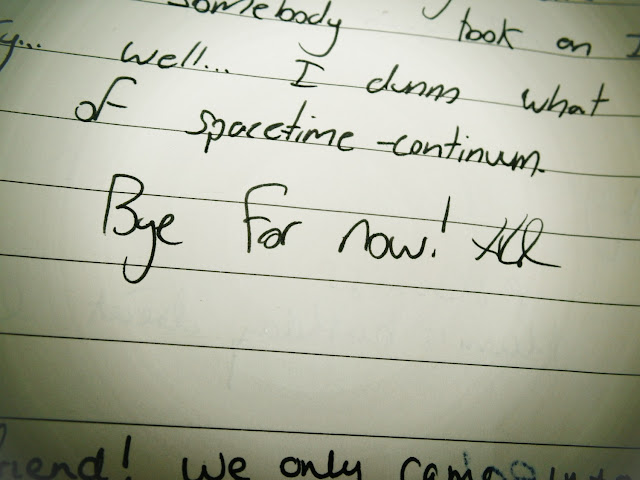 somebody took an I
y... well... I dunno what
of spacetime-continum.
Bye for now!
friend! we only